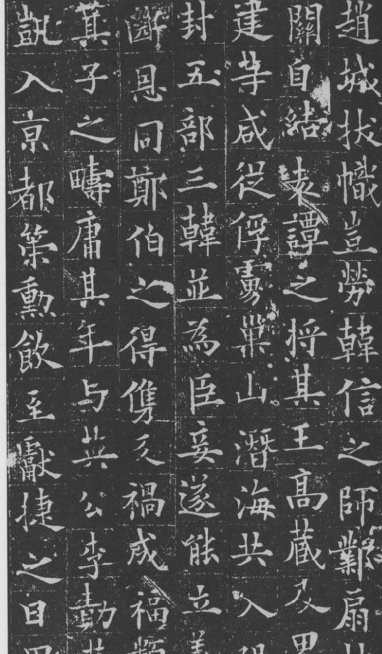 趙城拔幟豈勞韓信之師顭扇
關自結袁譚之将其王髙藏及男
建等咸從俘虜巢山潛海共入
封五部三韓並為臣妾遂能立義
斷恩同鄭伯之得儁反禍成福類
其子之疇庸其年与英公李勣
凱入京都策勳飲至獻捷之日